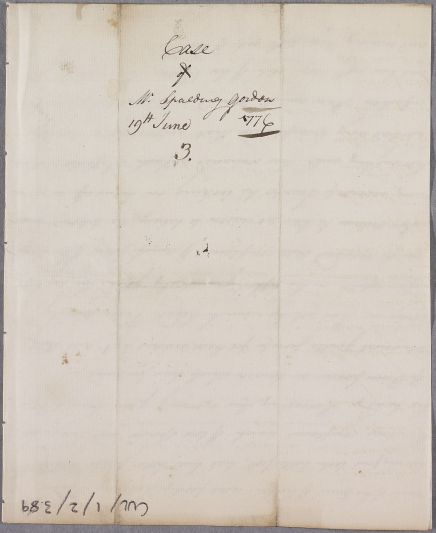 Case
of
Mr. Spalding Gordon
19th June 1776
3.
CUL/1/2/389